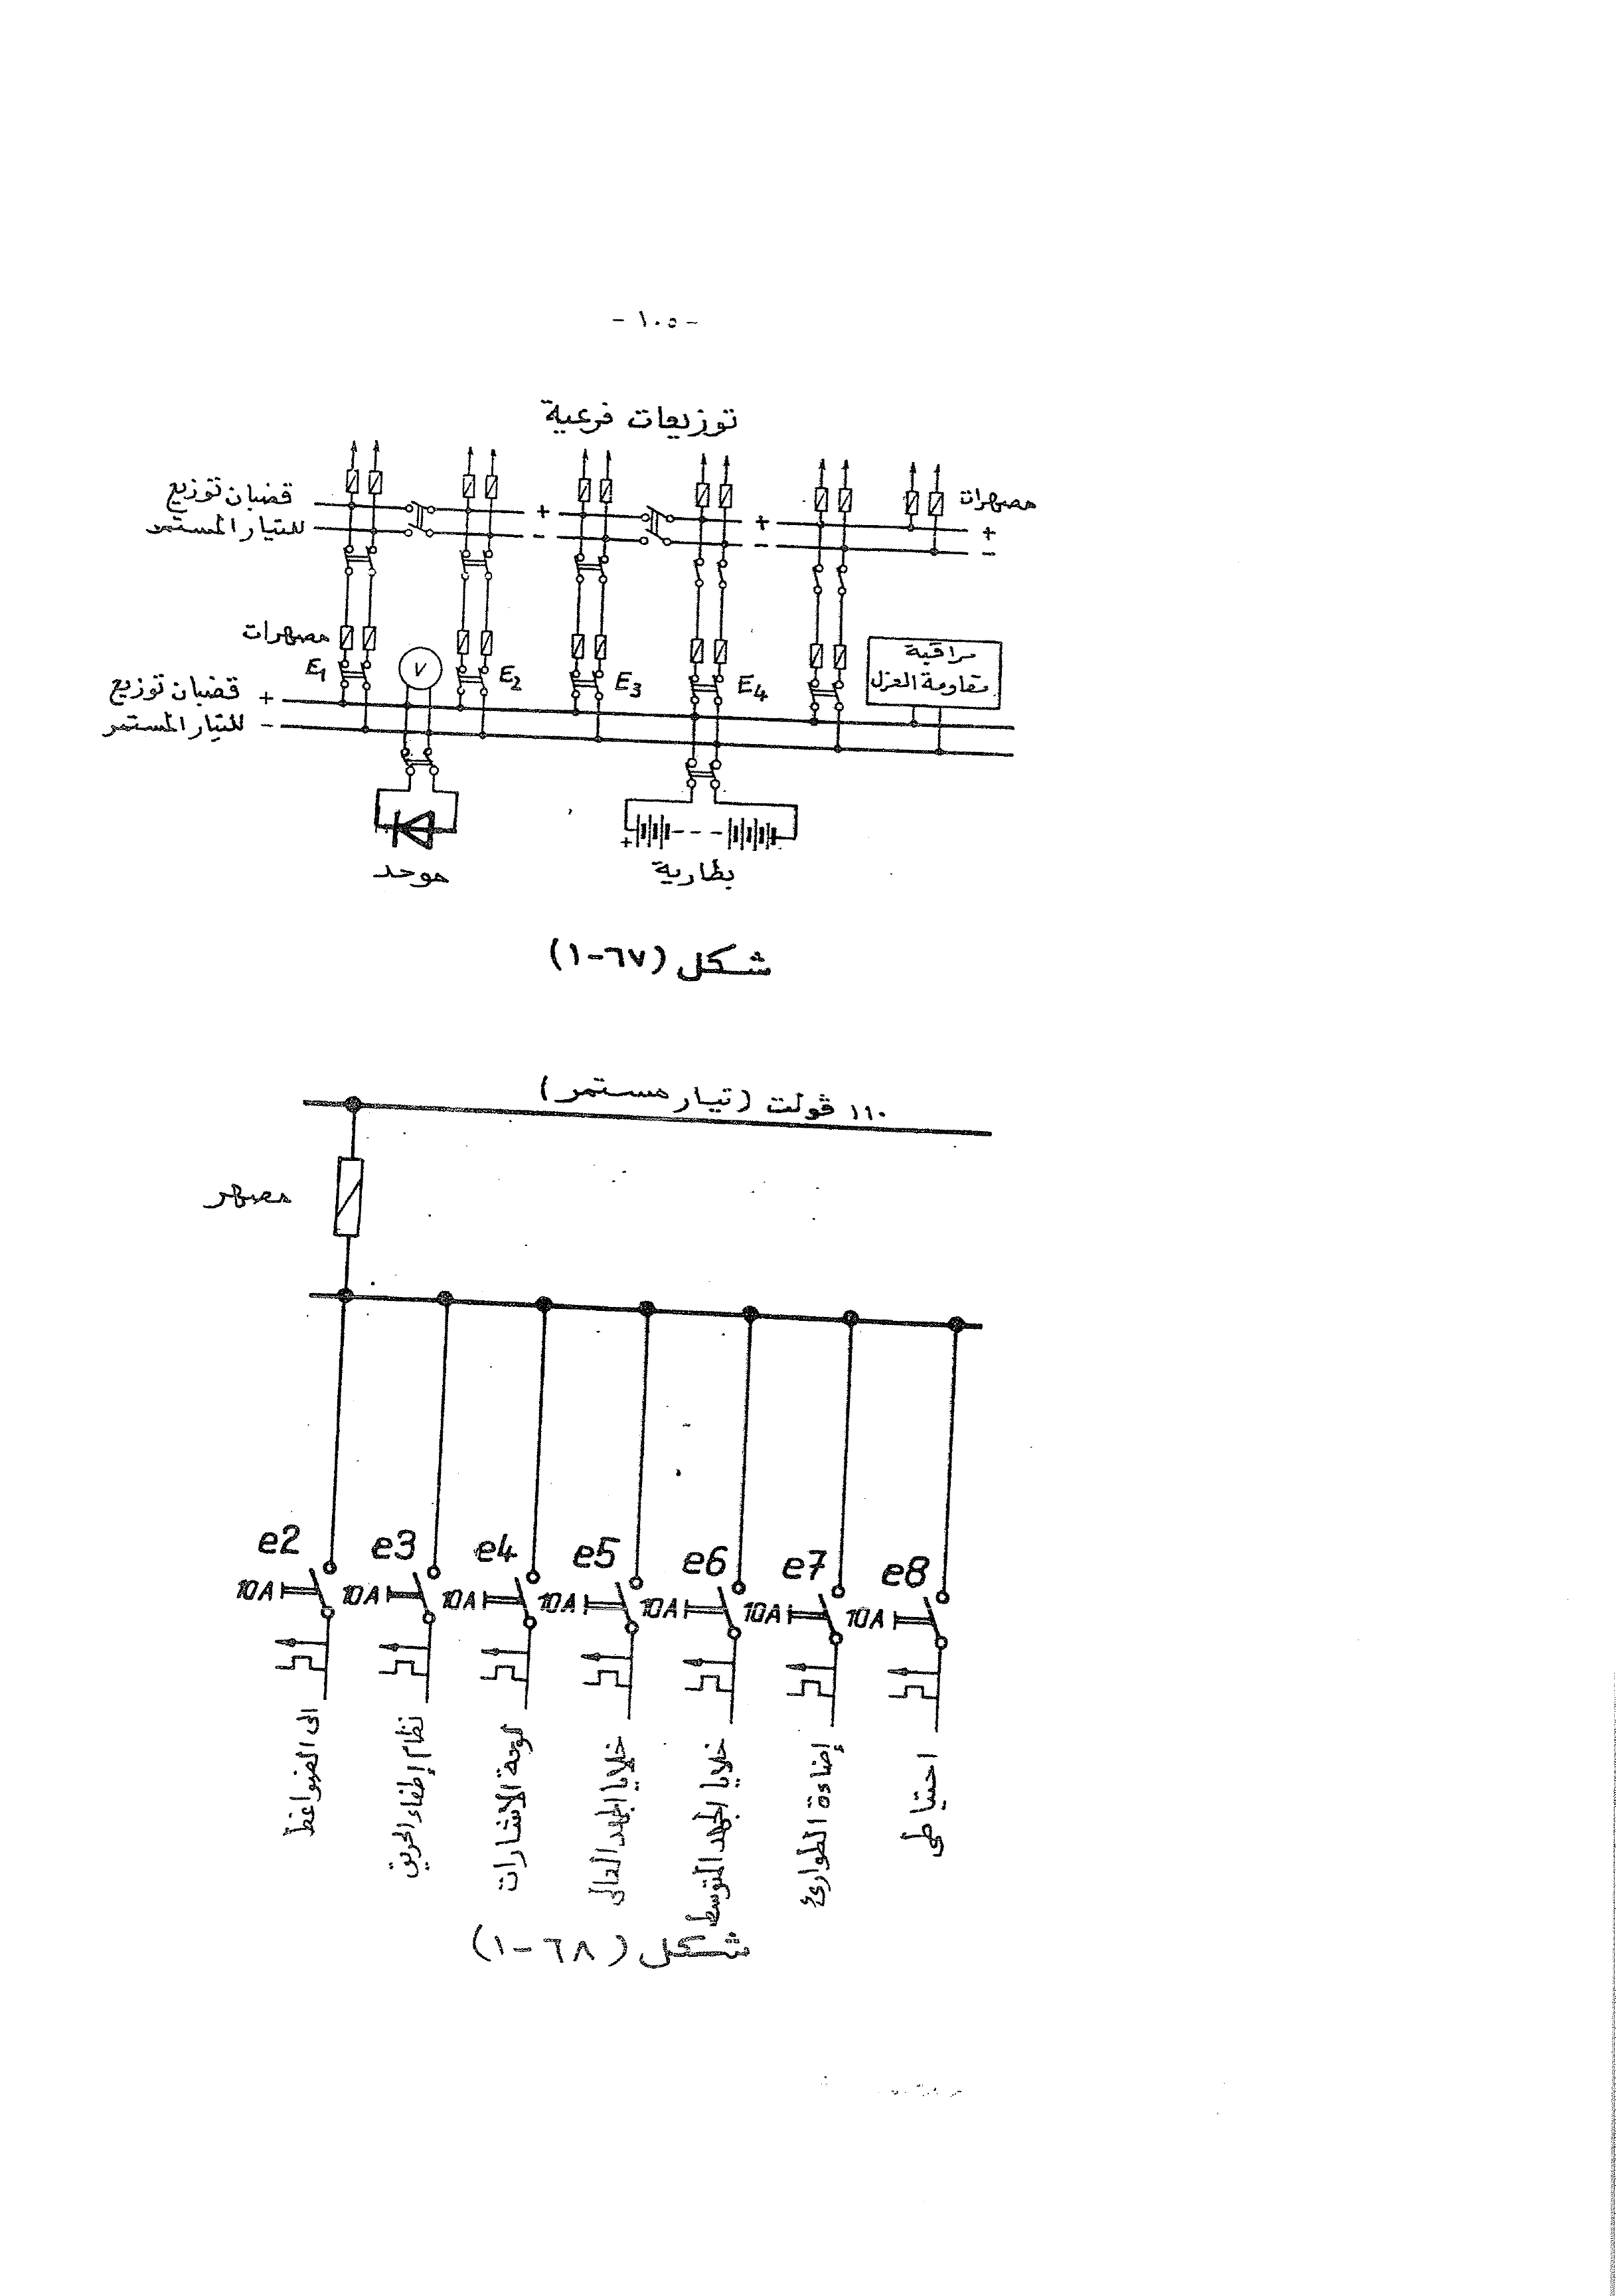 - ١٠٥ -
توزيعات فرعية
قضبان توزيع
للتيار المستمر
+ + +
- - -
مصهرات
مصهرات
E1 V E2 E3 E4
مراقبة
مقاومة العزل
قضبان توزيع +
للتيار المستمر -
+
موحد
بطارية
شكل (٦٧-١)
١١٠ ڤولت (تيار مستمر)
مصهر
e2 e3 e4 e5 e6 e7 e8
10A 10A 10A 10A 10A 10A 10A
الى الضواغط
نظام إطفاء الحريق
لوحة الاشارات
خلايا الجهد العالى
خلايا الجهد المتوسط
إضاءة الطوارئ
احتياطى
شكل (٦٨-١)